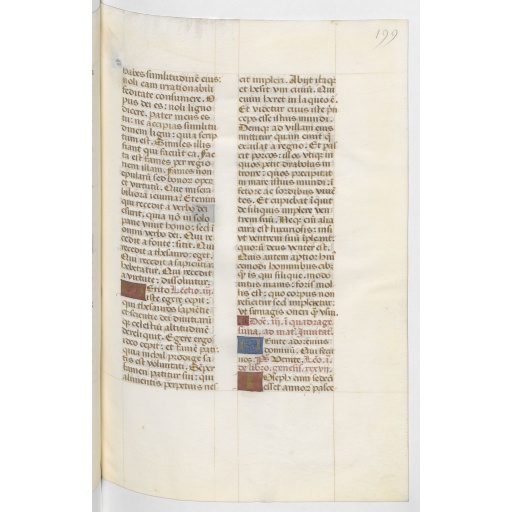 199
habes similitudinē eius:
noli eam irrationabili
feditate consumere. O
pus dei es: noli ligno
dicere, pater meus es
tu: ne accipias similitu
dinem ligni: quia scrip
tum est. Similes illis
fiant qui faciūt ea. Fac
ta est fames per regio
nem illam. fames non
epularū sed bonor oper
et virtutū. Que misera
biliora ieiunia? Etenim
qui recedit a verbo dei
esurit, quia nō in solo
pane vivit homo: sed ī
omni verbo dei. Qui re
cedit a fonte: sitit. Qui
recedit a thesauro: eget.
Qui recedit a sapientia:
hebetatur. Qui recedit
a virtute: dissolvitur.
Merito Lectio. iii.
iste egere cepit:
qui thesauros sapiētie
et scientie dei divitiarū
que celestiū altitudinē
dereliquit. Egere ergo
cepit: et famē pati:
quia nichil prodige sa
tis est voluptati. Semper
famem patitur sui: qui
alimentis perpetuis nes
cit impleri. Abiit itaque
et hesit uni civiū. Qui
enim heret in laqueo ē.
Et videtur civis iste prī
ceps esse istius mundi.
Deniq ad villam eius
mittitur quam emit q̄
excusat a regno. Et pas
cit porcos: illos utiq; in
quos petit dyabolus in
troire: quos precipitat
in mare istius mundi: ī
fetore ac sordibus viven
tes. Et cupiebat īquit
de siliquis implere ven
trem suū. Neq; eni alia
cura est luxuriosis: nisi
ut ventrem suū īpleant:
quorū deus venter est.
Quis autem aptior hui
modi hominibus cibꝰ
q̄ is qui siliquę. modo
intus inanis: foris mol
lis est: quo corpus non
reficitur sed impletur:
ut sit magis oneri q̄ usui.
Domī. iii. ī quadrage
sima. ad mat. Invitat.
Venite adoremus
dominū. Qui fecit
nos. Ps Venite. Leo. i.
de libro genesis xxxvii.
Ioseph cum sedeci
esset annor pasce